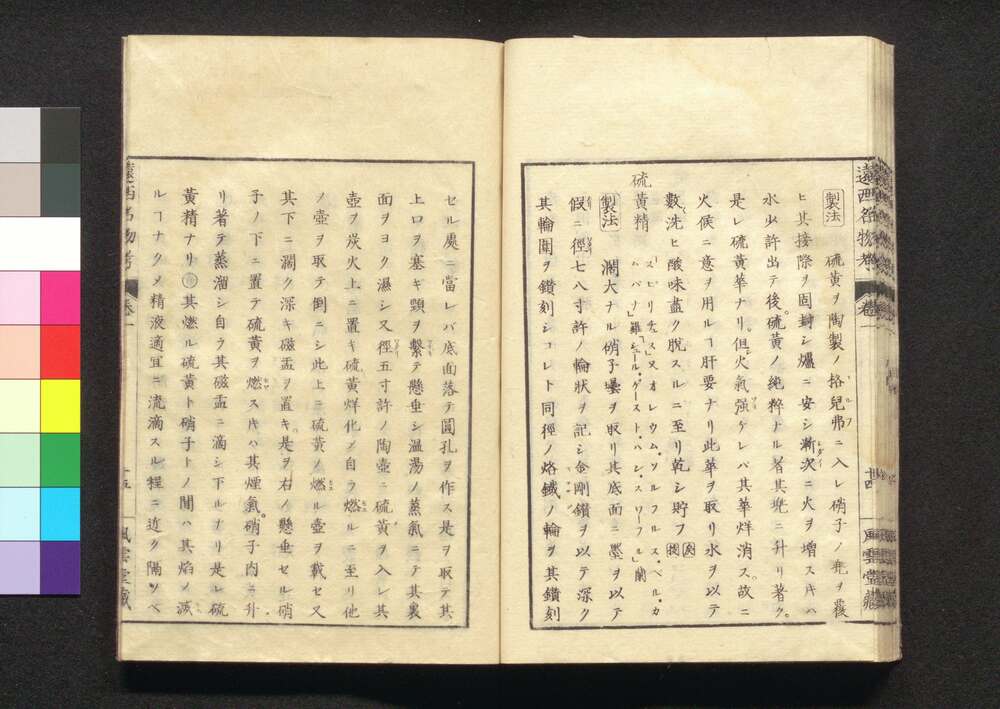 遠西名物考 卷一 十四 風雲堂藏
製法 硫黃ヲ陶製ノ挌兒弗ニ入レ硝子ノ兠ヲ覆
ヒ其接際ヲ固封シ爐ニ安シ漸次ニ火ヲ增スキハ
水少許出テ後硫黃ノ純粹ナル者其兠ニ升リ著ク
是レ硫黃華ナリ但火氣强ケレバ其華烊消ス故ニ
火候ニ意ヲ用ルヿ肝要ナリ此華ヲ取リ水ヲ以テ
數洗ヒ酸味盡ク脫スルニ至リ乾シ貯フ
硫黃精
製法 濶大ナル硝子壜ヲ取リ其底面ニ墨ヲ以テ
假ニ徑七八寸許ノ輪狀ヲ記シ金剛鑽ヲ以テ深ク
其輪圍ヲ鑽刻シコレト同徑ノ烙鐵ノ輪ヲ其鑽刻
セル處ニ當レバ底面落テ圓孔ヲ作ス是ヲ取テ其
上口ヲ塞ギ顎ヲ繫テ懸垂シ溫湯ノ蒸氣ニテ其裏
面ヲヨク濕シ又徑五寸許ノ陶壺ニ硫黃ヲ入レ其
壺ヲ炭火上ニ置キ硫黃烊化メ自ラ燃ルニ至リ他
ノ壺ヲ取テ倒ニシ此上ニ硫黃ノ燃ル壺ヲ載セ又
其下ニ濶ク深キ磁盂ヲ置キ是ヲ右ノ懸垂セル硝
子ノ下ニ置テ硫黃ヲ燃スキハ其煙氣硝子內ニ升
リ著テ蒸溜シ自ラ其磁盂ニ滴シ下ルナリ是レ硫
黃精ナリ其燃ル硫黃ト硝子トノ間ハ其焰ノ滅
ルヿナクメ精液適宜ニ流滴スル程ニ近ク隔ツベ
遠西名物考 卷一 十五 風雲堂藏